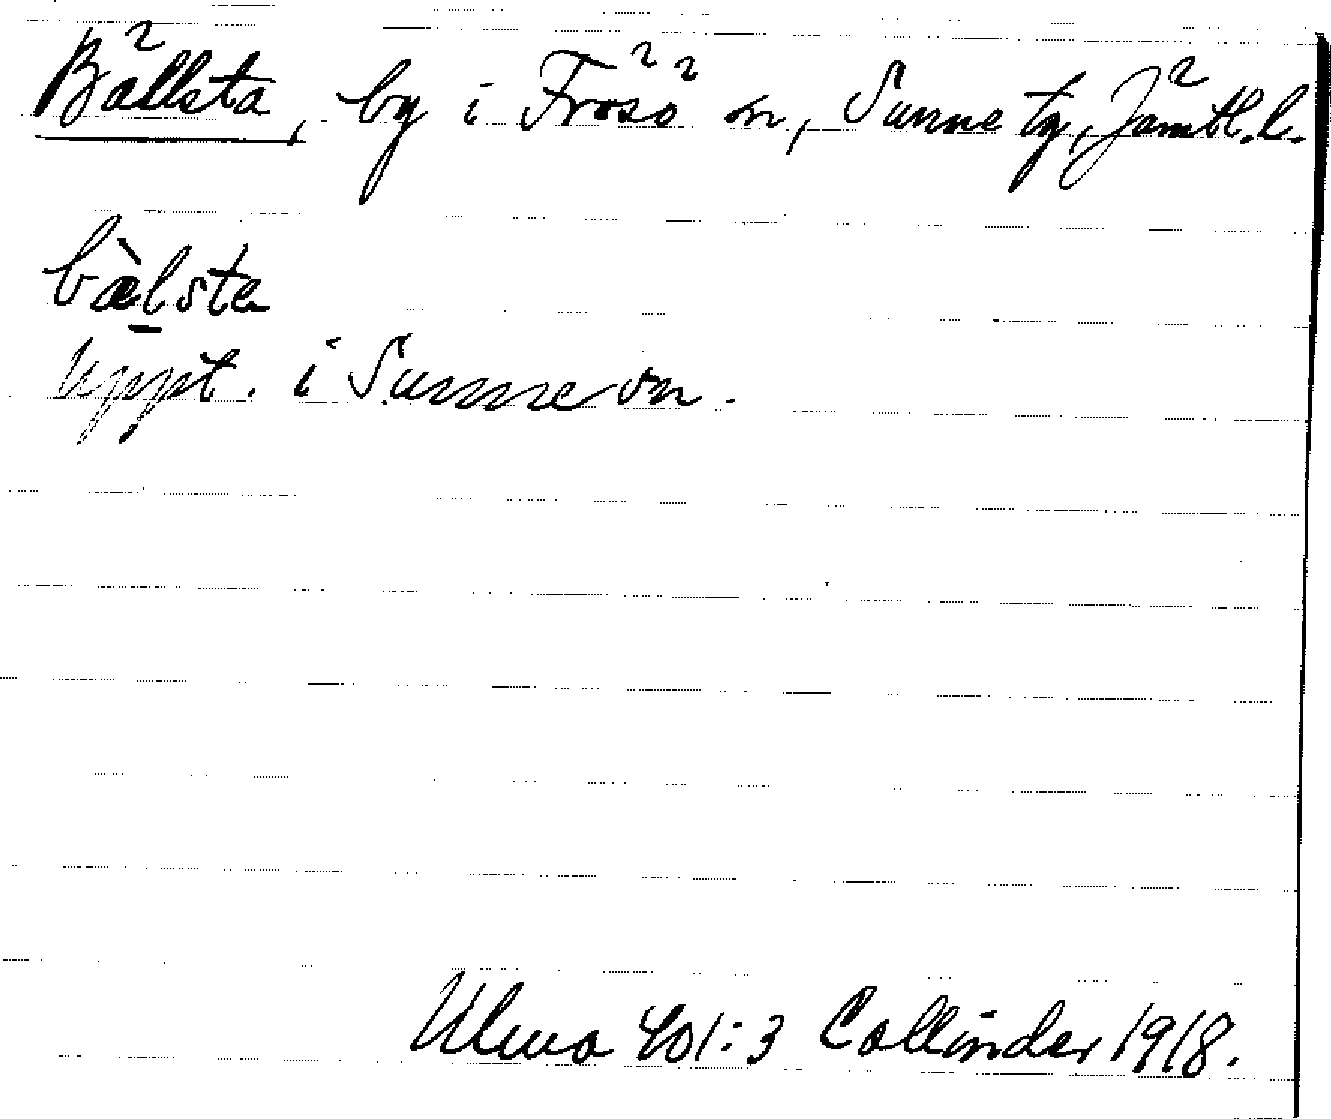 Bällsta, by i Frösö sn, Sunne tg, Jämtl. l.
bæ̀lsta
Uppt. i Sunne sn.
Ulma 401:3 Collinder 1918.